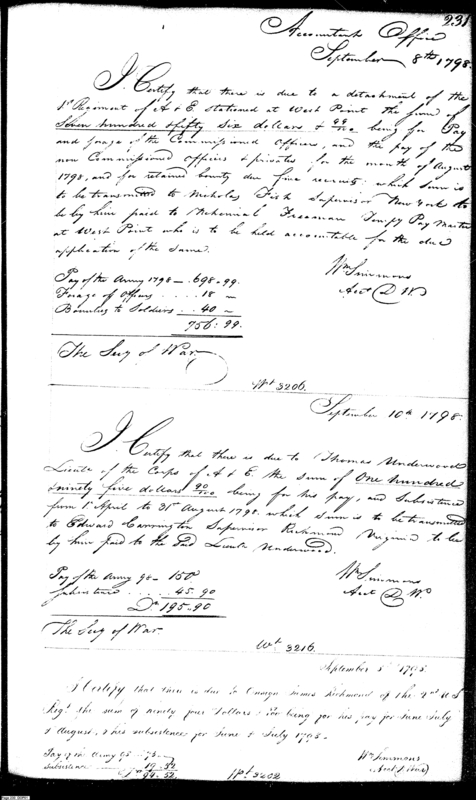 231
Accountants Office
September 8th 1798
I Certify that there is due to a detachment of the
1st Regiment of A & E stationed at West Point the sum of
Seven hundred & fifty six dollars & 99/100 being for Pay
and forage of the Commissioned Officers, and the pay of the
non Commissioned Officers & privates, for the month of August
1798, and for retained bounty due five recruits, which sum is
to be transmitted to Nicholas Fish Supervisor New York to
be by him paid to Nehemiah Freeman Tempy Pay Master
at West Point who is to be held accountable for the due
application of the same.
Wm Simmons
Acct D W.
Pay of the Army 1798 — 698.99.
Forage of Officers .... 18 —
Bounties to Soldiers .. 40 —
756.99.
The Secy of War.
Wt 3206.
September 10th 1798.
I Certify that there is due to Thomas Underwood
Lieutt of the Corps of A & E the sum of One hundred
& ninety five dollars 90/100 being for his pay, and Subsistence
from 1 April to 31st August 1798. which sum is to be transmitted
to Edward Carrington Supervisor Richmond Virginia to be
by him paid to the said Lieutt Underwood.
Wm Simmons
Acct D W.
Pay of the Army 98 — 150
Subsistence .... 45.90
Drs 195.90
The Secy of War.
Wt 3216.
September 5 1798.
I Certify that there is due to Ensign James Richmond of the 2nd U S
Regt the sum of ninety four Dollars 52/100 being for his pay for June July
& August, & his subsistence for June & July 1798.
Pay of the Army 98 — 75 —
Subsistence — 19.52
Drs 94.52.
Wt 3202
Wm Simmons